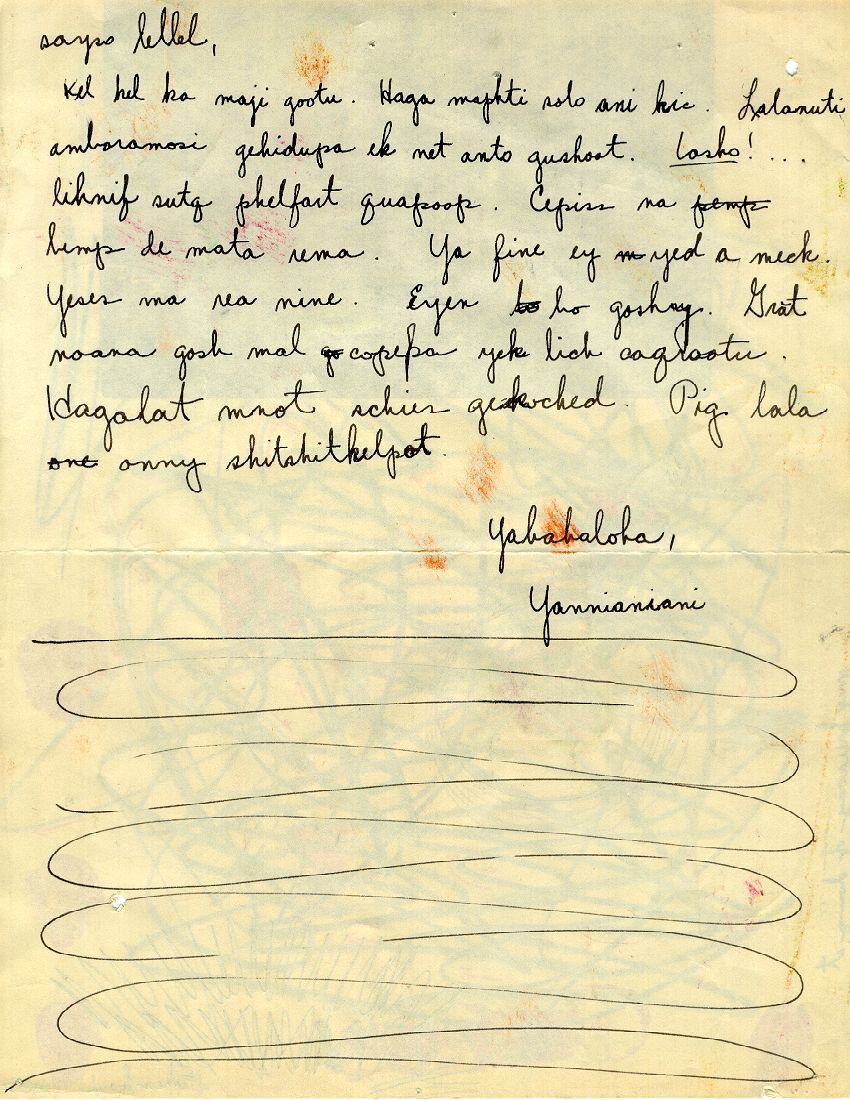 sayso lellel,
Kel hel ka maji gootu. Haga maphti solo ani kic. Lalanuti
amboramosi gehidupa ek net anto gushoot. Losho! ...
lihnif sutq phelfart quapoop. Cepiss na pemp
bemp de mata rema. Ya fine ey m yed a meck.
Yeses ma rea nine. Eyen to ho goshny. Grat
noana gosh mal q copepa yek lich caqlootu.
Hagahat mnot schies gekoched. Pig lala
one onny shitshitkelpot.
Yabahaloha,
Yannianiani